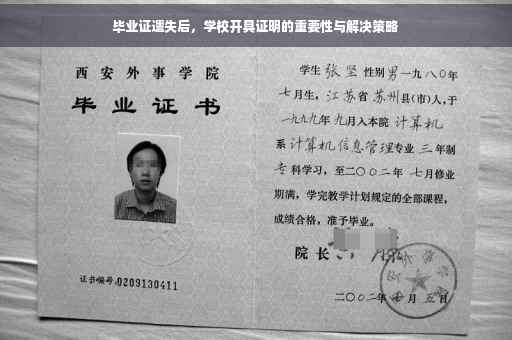 毕业证遗失后，学校开具证明的重要性与解决策略
西安外事学院
毕业证书
证书编号:0209130411
学生 张坚 性别 男 一九八〇年
七月生，江苏省 苏州 县(市)人，于
一九九九年 九月入本院 计算机
系 计算机信息管理 专业 三 年制
专科学习，至二〇〇二年 七月修业
期满，学完教学计划规定的全部课程，
成绩合格，准予毕业。
院长
二〇〇二年 七月 五日